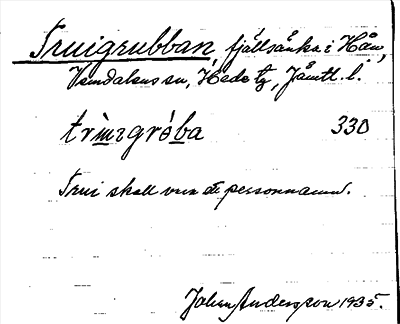 Truigrubban, fjällsänka i Hån,
Vemdalens sn, Hede tg, Jämtl. l.
trìu̲ɪgrób̲a 330
Trui skall vara ett personnamn.
Johan Andersson 1935.